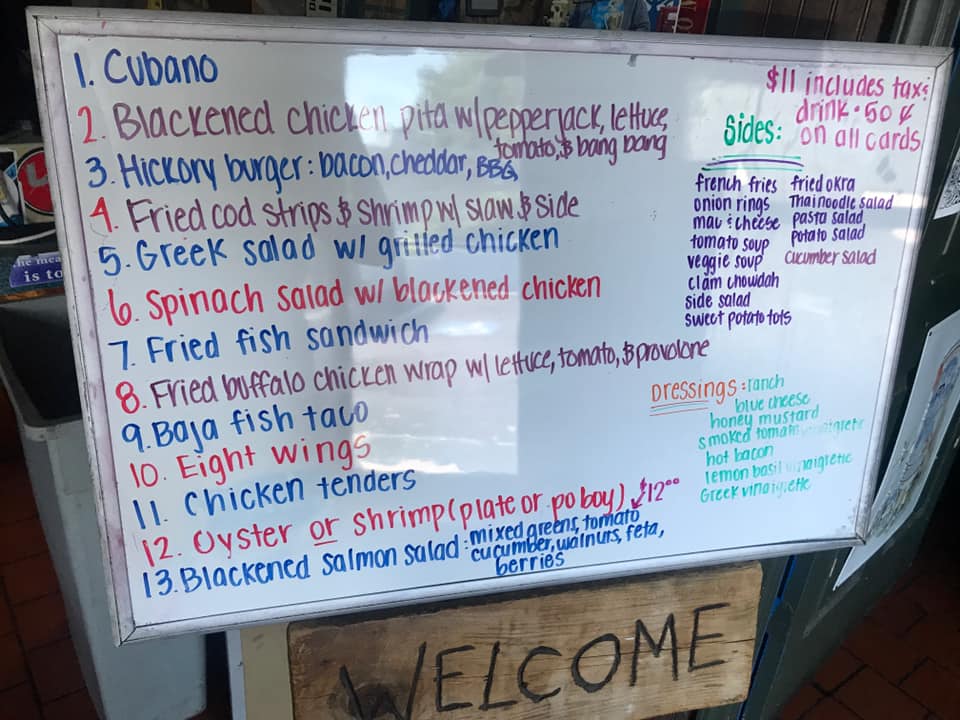 1. Cubano
2. Blackened chicken pita w/ pepperjack, lettuce,
tomato, & bang bang
3. Hickory burger: bacon, cheddar, BBQ
4. Fried cod strips & shrimp w/ slaw & side
5. Greek salad w/ grilled chicken
6. Spinach salad w/ blackened chicken
7. Fried fish sandwich
8. Fried buffalo chicken wrap w/ lettuce, tomato, & provolone
9. Baja fish taco
10. Eight wings
11. Chicken tenders
12. Oyster or shrimp (plate or po boy) $12.00
13. Blackened salmon salad: mixed greens, tomato
cucumber, walnuts, feta,
berries
$11 includes tax &
drink • 50 ¢
on all cards
Sides:
french fries
onion rings
mac & cheese
tomato soup
veggie soup
clam chowdah
side salad
sweet potato tots
fried okra
Thai noodle salad
pasta salad
potato salad
cucumber salad
Dressings: ranch
blue cheese
honey mustard
smoked tomato vinaigrette
hot bacon
lemon basil vinaigrette
Greek vinaigrette
is to
WELCOME